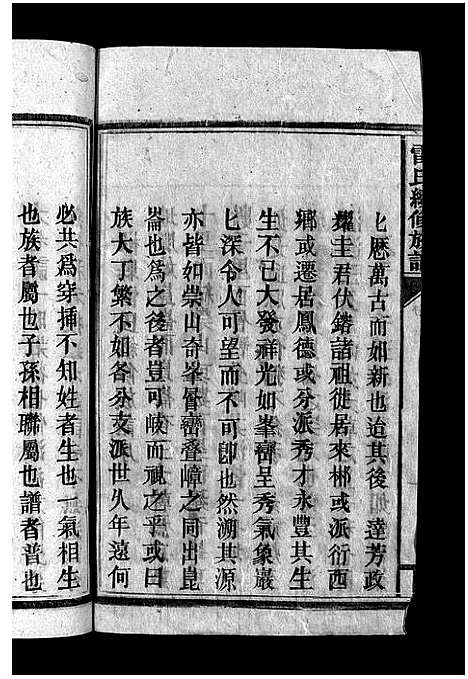 雷氏續修族譜
匕歷萬古而如新也迨其後如達芳政
耀圭君伏鏘諸祖徙居來郴或派衍西
鄉或遷居鳳德或分派秀才永豐其生
生不已大發祥光如峯巒呈秀氣象巖
匕深令人可望而不可卽也然溯其源
亦皆如崇山奇峯層巒叠嶂之同出崑
崙也為之後者豈可岐而視之乎或曰
族大丁繁不如各分支派世久年遠何
必共為穿揷不知姓者生也一氣相生
也族者屬也子孫相聯屬也譜者普也